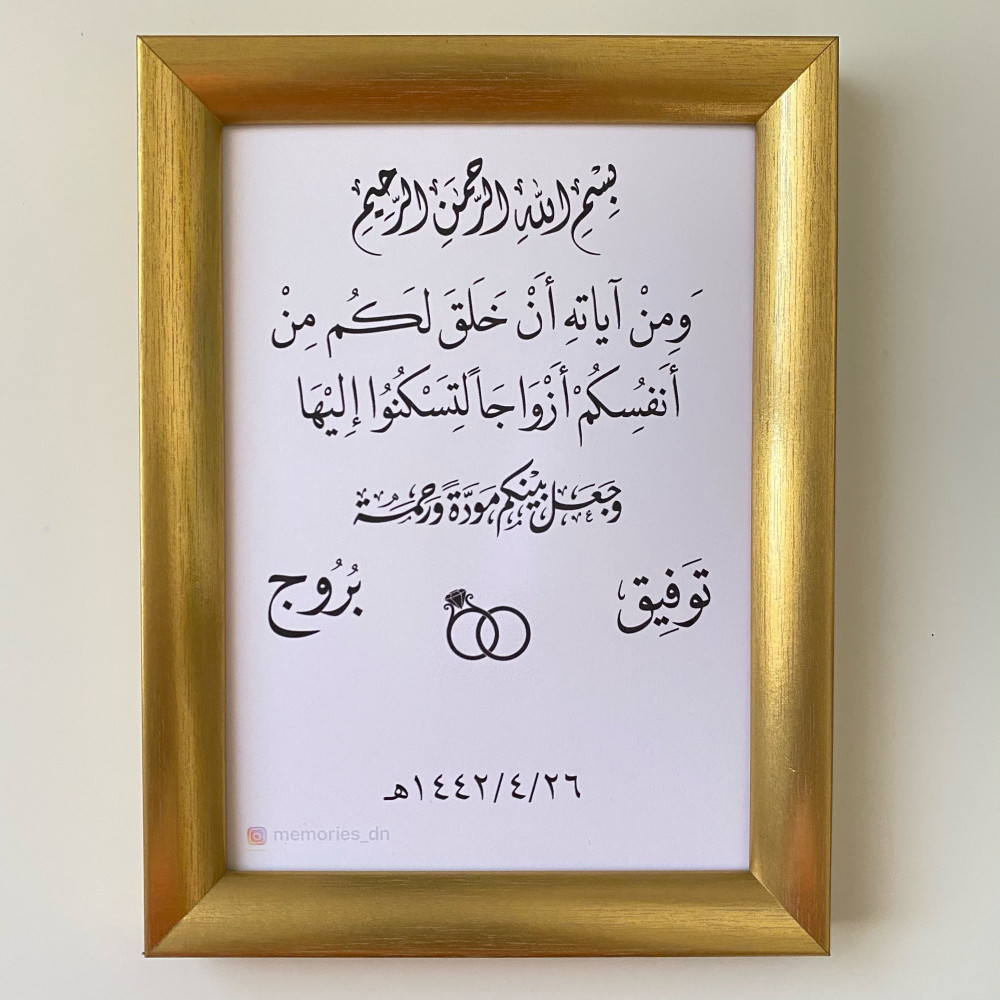 بِسْمِ اللهِ الرَّحْمَنِ الرَّحِيمِ
وَمِنْ آيَاتِهِ أَنْ خَلَقَ لَكُم مِنْ
أَنفُسِكُمْ أَزْوَاجَاً لِتَسْكُنُوا إِليْهَا
وَجَعَلَ بَيْنَكُم مَوَدَّةً وَرَحْمَةً
تَوَفِيق بُرُوج
٢٦/٤/١٤٤٢هـ
memories_dn